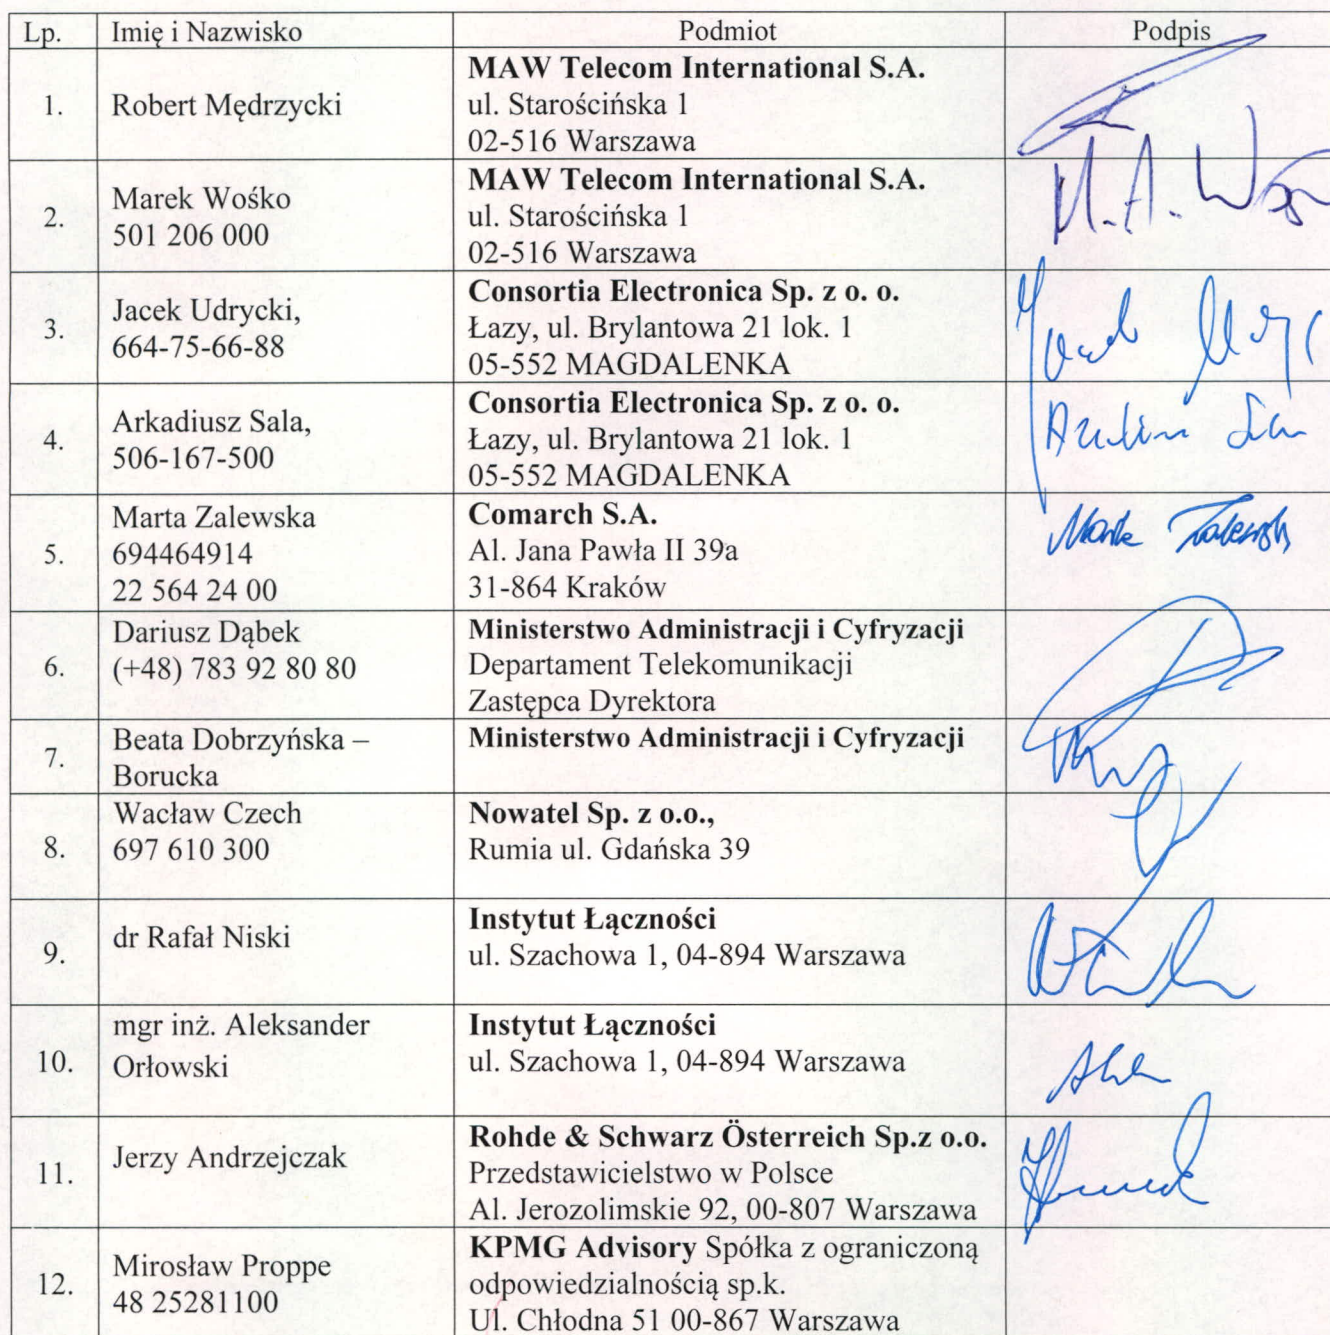 Lp. Imię i Nazwisko Podmiot Podpis
1. Robert Mędrzycki
MAW Telecom International S.A.
ul. Starościńska 1
02-516 Warszawa
2. Marek Wośko
501 206 000
MAW Telecom International S.A.
ul. Starościńska 1
02-516 Warszawa
M.A.
3. Jacek Udrycki,
664-75-66-88
Consortia Electronica Sp. z o. o.
Łazy, ul. Brylantowa 21 lok. 1
05-552 MAGDALENKA
4. Arkadiusz Sala,
506-167-500
Consortia Electronica Sp. z o. o.
Łazy, ul. Brylantowa 21 lok. 1
05-552 MAGDALENKA
5. Marta Zalewska
694464914
22 564 24 00
Comarch S.A.
Al. Jana Pawła II 39a
31-864 Kraków
6. Dariusz Dąbek
(+48) 783 92 80 80
Ministerstwo Administracji i Cyfryzacji
Departament Telekomunikacji
Zastępca Dyrektora
7. Beata Dobrzyńska –
Borucka
Ministerstwo Administracji i Cyfryzacji
8. Wacław Czech
697 610 300
Nowatel Sp. z o.o.,
Rumia ul. Gdańska 39
9. dr Rafał Niski
Instytut Łączności
ul. Szachowa 1, 04-894 Warszawa
10. mgr inż. Aleksander
Orłowski
Instytut Łączności
ul. Szachowa 1, 04-894 Warszawa
11. Jerzy Andrzejczak
Rohde & Schwarz Österreich Sp.z o.o.
Przedstawicielstwo w Polsce
Al. Jerozolimskie 92, 00-807 Warszawa
12. Mirosław Proppe
48 25281100
KPMG Advisory Spółka z ograniczoną
odpowiedzialnością sp.k.
Ul. Chłodna 51 00-867 Warszawa